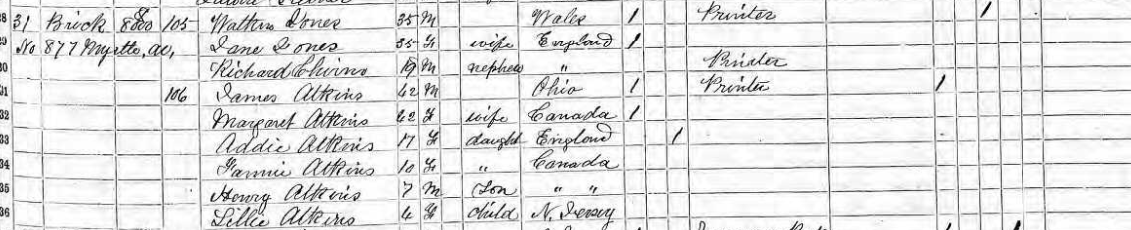 28 31 Brick 8000 105 Watkin Jones 35 M Wales 1 Printer 1
29 No 877 Myrtle, av, Jane Jones 35 F wife England 1
30 Richard 19 M nephew " Printer
31 106 James Atkins 42 M Ohio 1 Printer 1
32 Margaret Atkins 42 F wife Canada 1
33 Addie Atkins 17 F daught England 1
34 Fannie Atkins 10 F " Canada
35 Henry Atkins 7 M Son " "
36 Lillie Atkins 4 F child N. Jersey